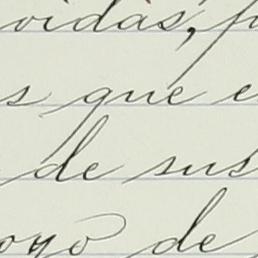 vidas, f
s que e
de sus
oyo de